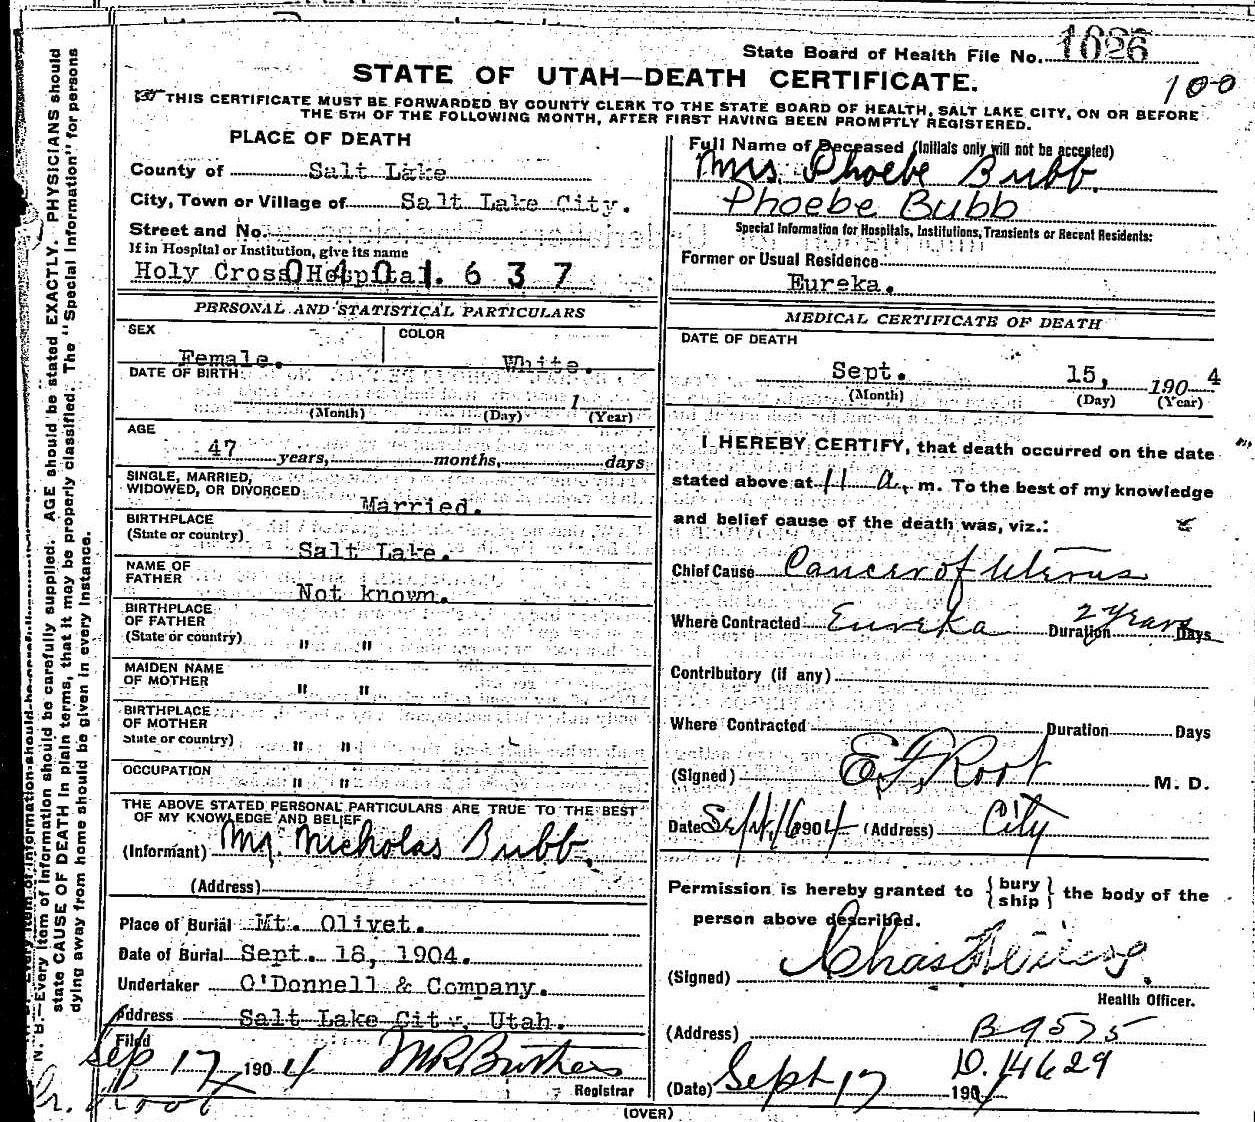 State Board of Health File No. 1626
100
STATE OF UTAH—DEATH CERTIFICATE.
THIS CERTIFICATE MUST BE FORWARDED BY COUNTY CLERK TO THE STATE BOARD OF HEALTH, SALT LAKE CITY, ON OR BEFORE
THE 5TH OF THE FOLLOWING MONTH, AFTER FIRST HAVING BEEN PROMPTLY REGISTERED.
PLACE OF DEATH
County of Salt Lake
City, Town or Village of Salt Lake City.
Street and No.
If in Hospital or Institution, give its name
Holy Cross Hospital. 637
PERSONAL AND STATISTICAL PARTICULARS
SEX Female.
COLOR White.
DATE OF BIRTH
1
(Month) (Day) (Year)
AGE
47 years, months, days
SINGLE, MARRIED,
WIDOWED, OR DIVORCED Married.
BIRTHPLACE
(State or country) Salt Lake.
NAME OF
FATHER Not known.
BIRTHPLACE
OF FATHER
(State or country) " "
MAIDEN NAME
OF MOTHER " "
BIRTHPLACE
OF MOTHER
State or country) " "
OCCUPATION " "
THE ABOVE STATED PERSONAL PARTICULARS ARE TRUE TO THE BEST
OF MY KNOWLEDGE AND BELIEF
(Informant) Mr. Nicholas Bubb.
(Address)
Place of Burial Mt. Olivet.
Date of Burial Sept. 18, 1904.
Undertaker O'Donnell & Company.
Address Salt Lake City, Utah.
Filed
Sep 17 1904
Registrar
Full Name of Deceased (Initials only will not be accepted)
Mrs. Phoebe Bubb.
Phoebe Bubb
Special Information for Hospitals, Institutions, Transients or Recent Residents:
Former or Usual Residence
Eureka.
MEDICAL CERTIFICATE OF DEATH
DATE OF DEATH
Sept. 15, 1904
(Month) (Day) (Year)
I HEREBY CERTIFY, that death occurred on the date
stated above at 11 a. m. To the best of my knowledge
and belief cause of the death was, viz.:
Chief Cause Cancer of Uterus
Where Contracted Eureka Duration 2 years Days
Contributory (if any)
Where Contracted Duration Days
(Signed) E. F. Root M. D.
Date Sept. 16 1904 (Address) City
Permission is hereby granted to { bury ship } the body of the
person above described.
(Signed) Chas
Health Officer.
(Address) B 9575
D. 14629
(Date) Sept 17 190
(OVER)
N. B.—Every item of information should be carefully supplied. AGE should be stated EXACTLY. PHYSICIANS should
state CAUSE OF DEATH in plain terms, that it may be properly classified. The "Special Information" for persons
dying away from home should be given in every instance.
Root